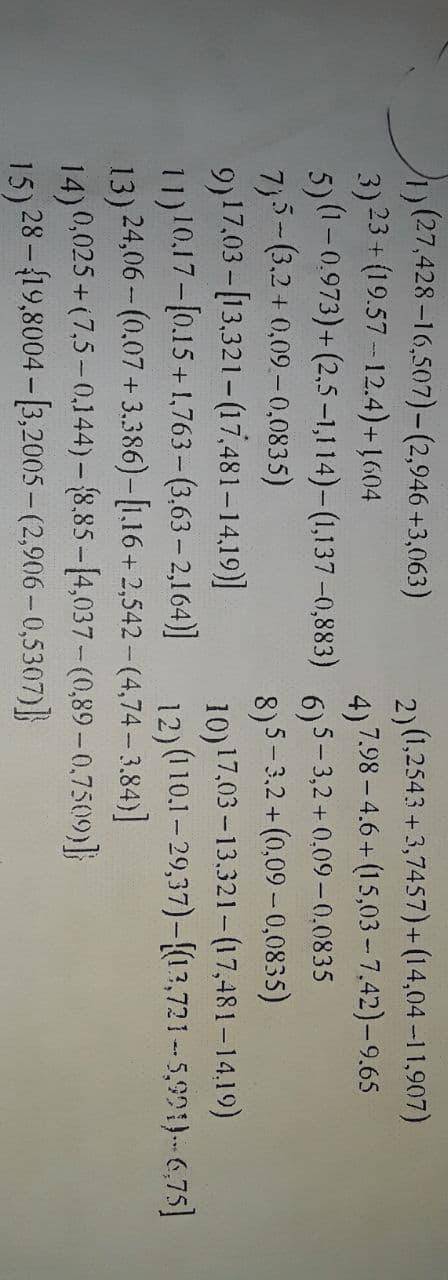 1) (27,428–16,507)–(2,946+3,063) 2) (1,2543+3,7457)+(14,04–11,907)
3) 23+(19.57–12.4)+1604 4) 7.98–4.6+(15,03–7,42)–9.65
5) (1–0.973)+(2,5–1,114)–(1,137–0,883) 6) 5–3,2+0,09–0,0835
7) 5–(3,2+0,09–0,0835) 8) 5–3,2+(0,09–0,0835)
9) 17,03–[13,321–(17,481–14,19)] 10) 17,03–13,321–(17,481–14,19)
11) 10,17–[0.15+1,763–(3,63–2,164)] 12) (110,1–29,37)–[(13,721–5,991)–6,75]
13) 24,06–(0,07+3,386)–[1,16+2,542–(4,74–3,84)]
14) 0,025+(7,5–0,144)–{8,85–[4,037–(0,89–0,7509)]}
15) 28–{19,8004–[3,2005–(2,906–0,5307)]}